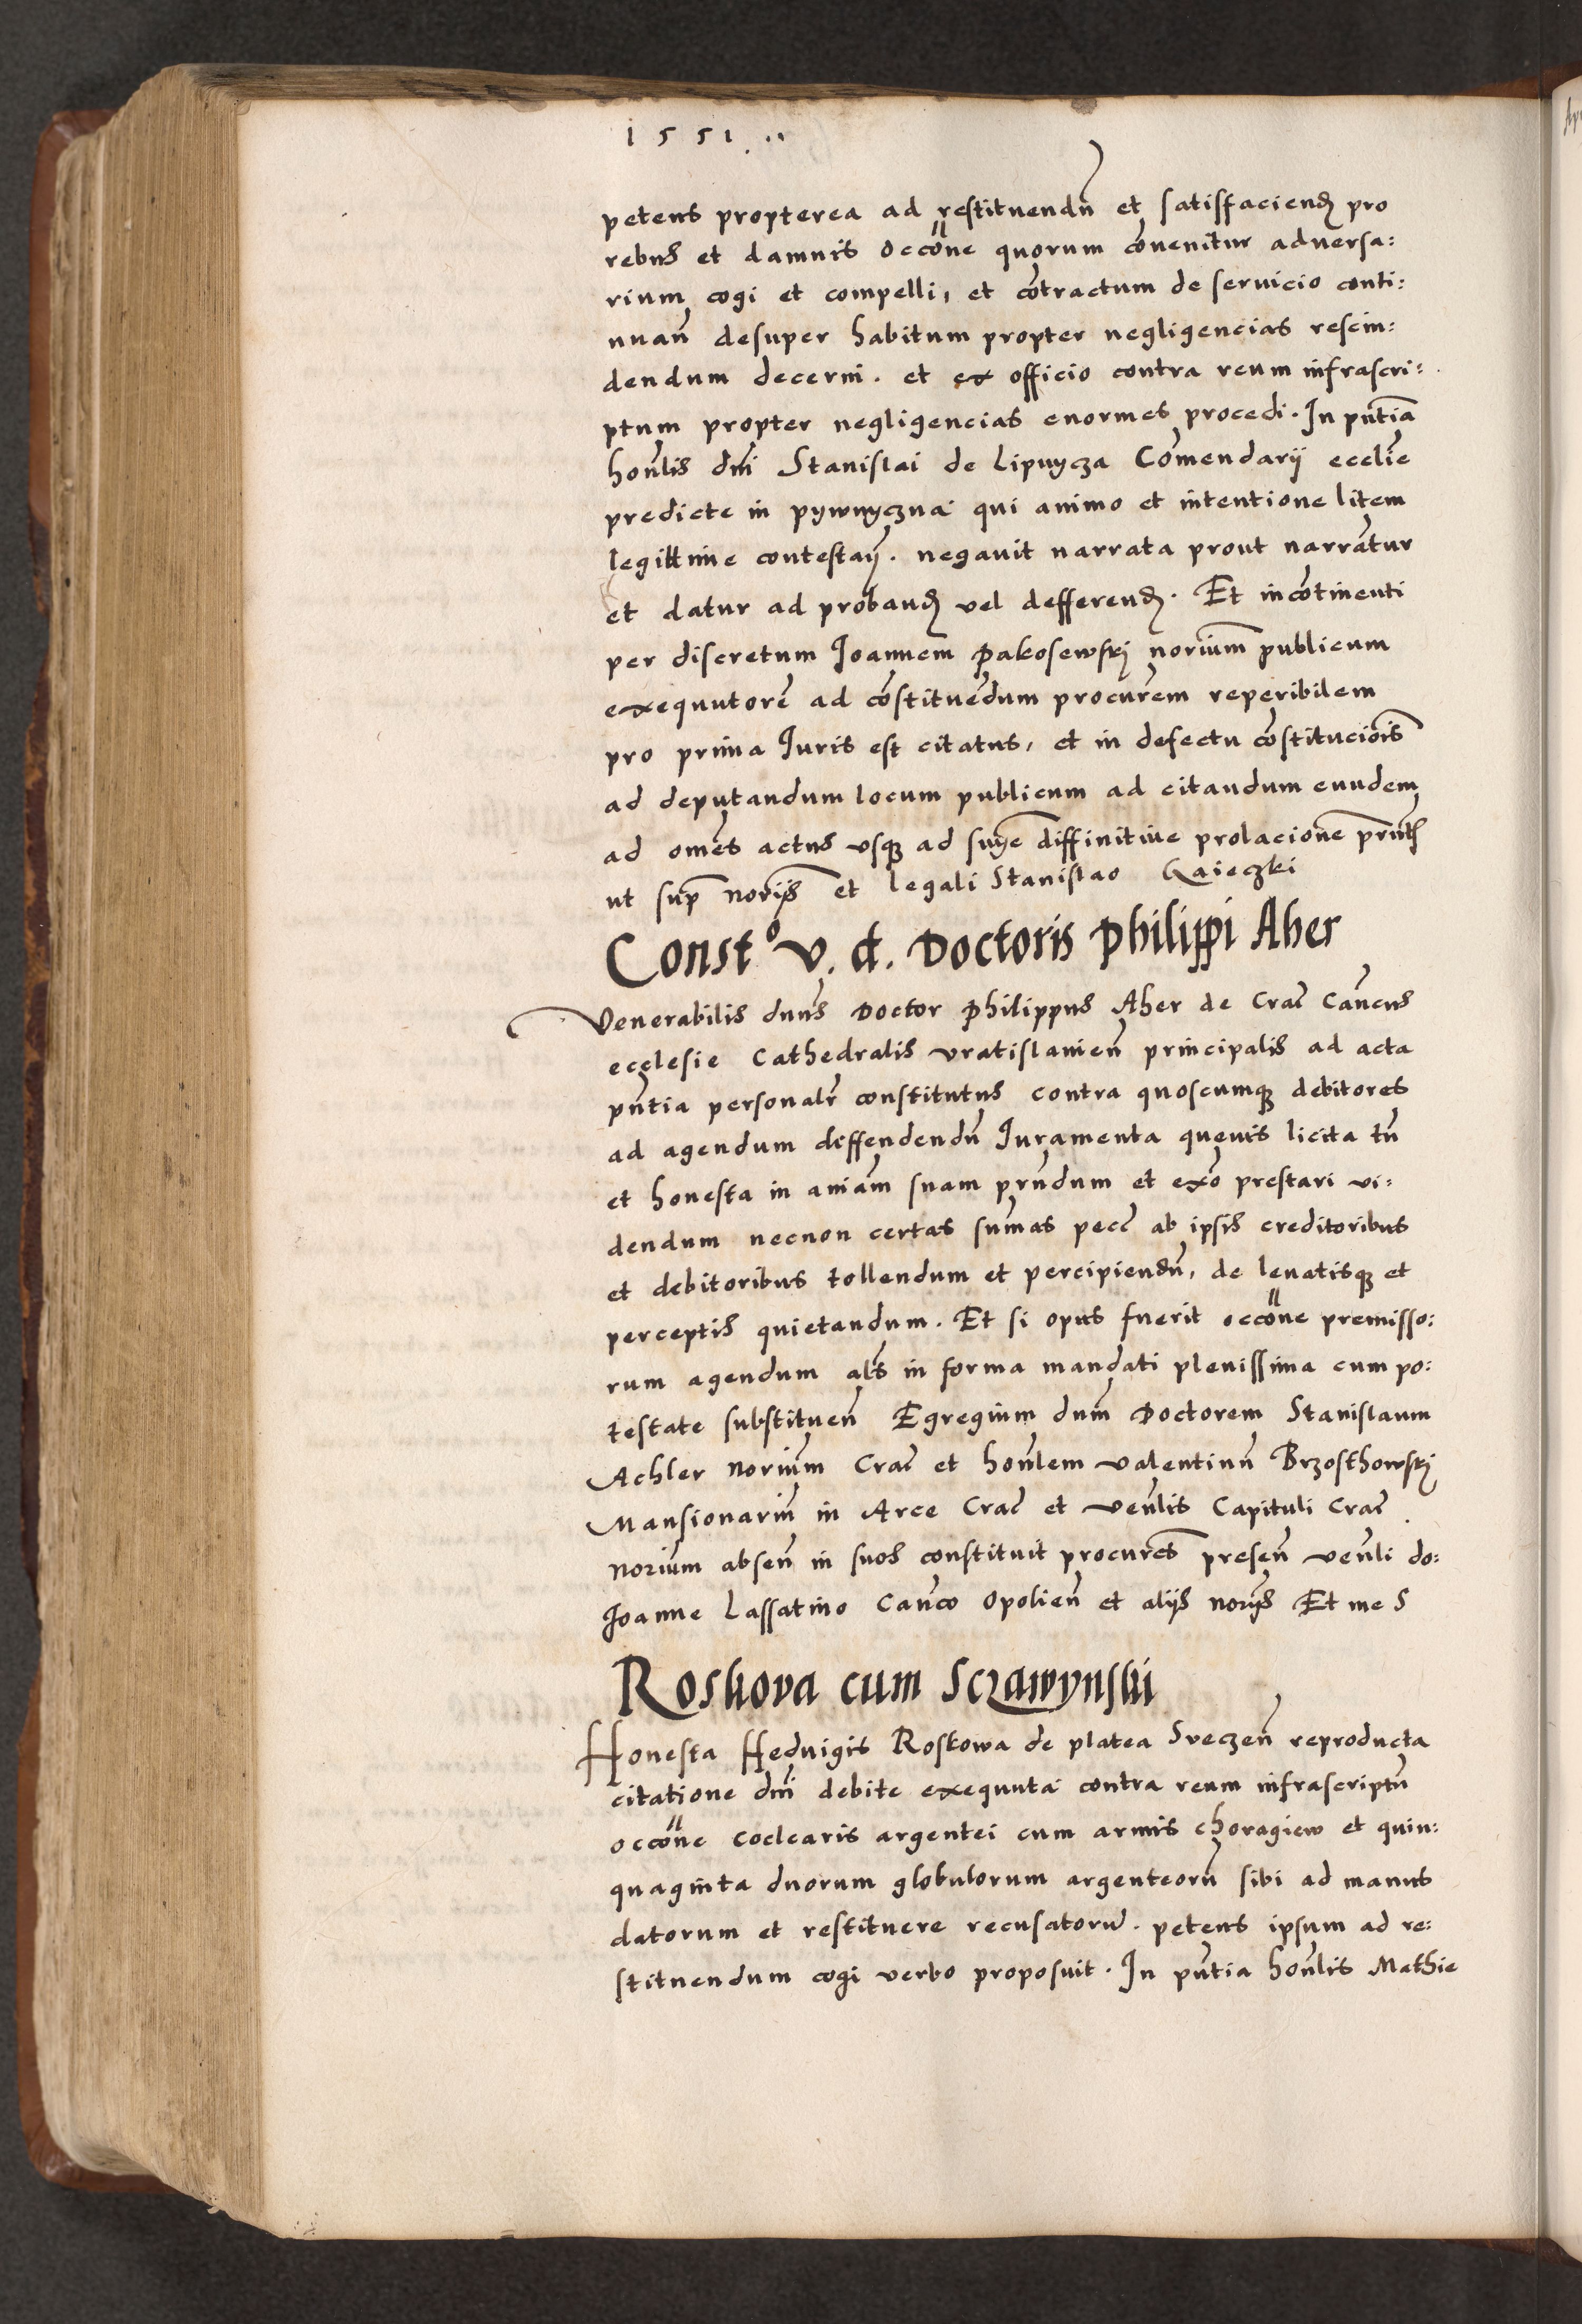 1551
petens propterea ad restituendū et satisfaciend pro
rebus et damnis occōne quorum cōvenitur adversa:
rium cogi et compelli, et cōtractum de servicio conti:
nuañ desuper habitum propter negligencias rescin:
dendum decerni. et ex officio contra reum infrascri:
ptum propter negligencias enormes procedi. In pñtia
honlis dni Stanislai de Lipnycza Comendarij ecclie
predicte in pywnyczna qui animo et intentione litem
legittime contestañ. negavit narrata prout narrãtur
et datur ad proband vel defferend. Et incōtinenti
per discretum Joannem Pakosewskj norium publicum
exequutorē ad cōstituēdum procurem reperibilem
pro prima Juris est citatus, et in defectu cōstitucionis
ad deputandum locum publicum ad citandum eundem
ad omēs actus usq ad snye diffinitive prolacione pñtib
ut sup norijs et legali Stanislao Gaieczki
Const° v. d. Doctoris Philippi Aher
Venerabilis dnus Doctor Philippus Aher de Crac Cancus
ecclesie Cathedralis vratislavieñ principalis ad acta
pñtia personalr constitutus contra quoscumq debitores
ad agendum diffendendū Juramenta quevis licita tñ
et honesta in aniam suam prñdum et exo prestari vi:
dendum necnon certas sumas pecc ab ipsis creditoribus
et debitoribus tollendum et percipiendū, de levatisq et
perceptis quietandum. Et si opus fuerit occōne premisso:
rum agendum als in forma mandati plenissima cum po:
testate substitueñ Egregium dnm Doctorem Stanislaum
Achler norium Crac et honlem valentinū Brzosthowskj
Mansionariū in Arce Crac et venlis Capituli Crac
norium abseñ in suos constituit procures preseñ venli do:
Joanne Lassatino Canco Opolieñ et alijs norijs Et me S
Roskova cum Sczawynski
Honesta Hedvigis Roskowa de platea Sveczeñ reproducta
citatione dni debite exequuta contra reum infrascriptū
occōne coclearis argentei cum armis choragiew et quin:
quaginta duorum globulorum argenteorū sibi ad manus
datorum et restituere recusatorū. petens ipsum ad re:
stituendum cogi verbo proposuit. In pñtia honlis Mathie